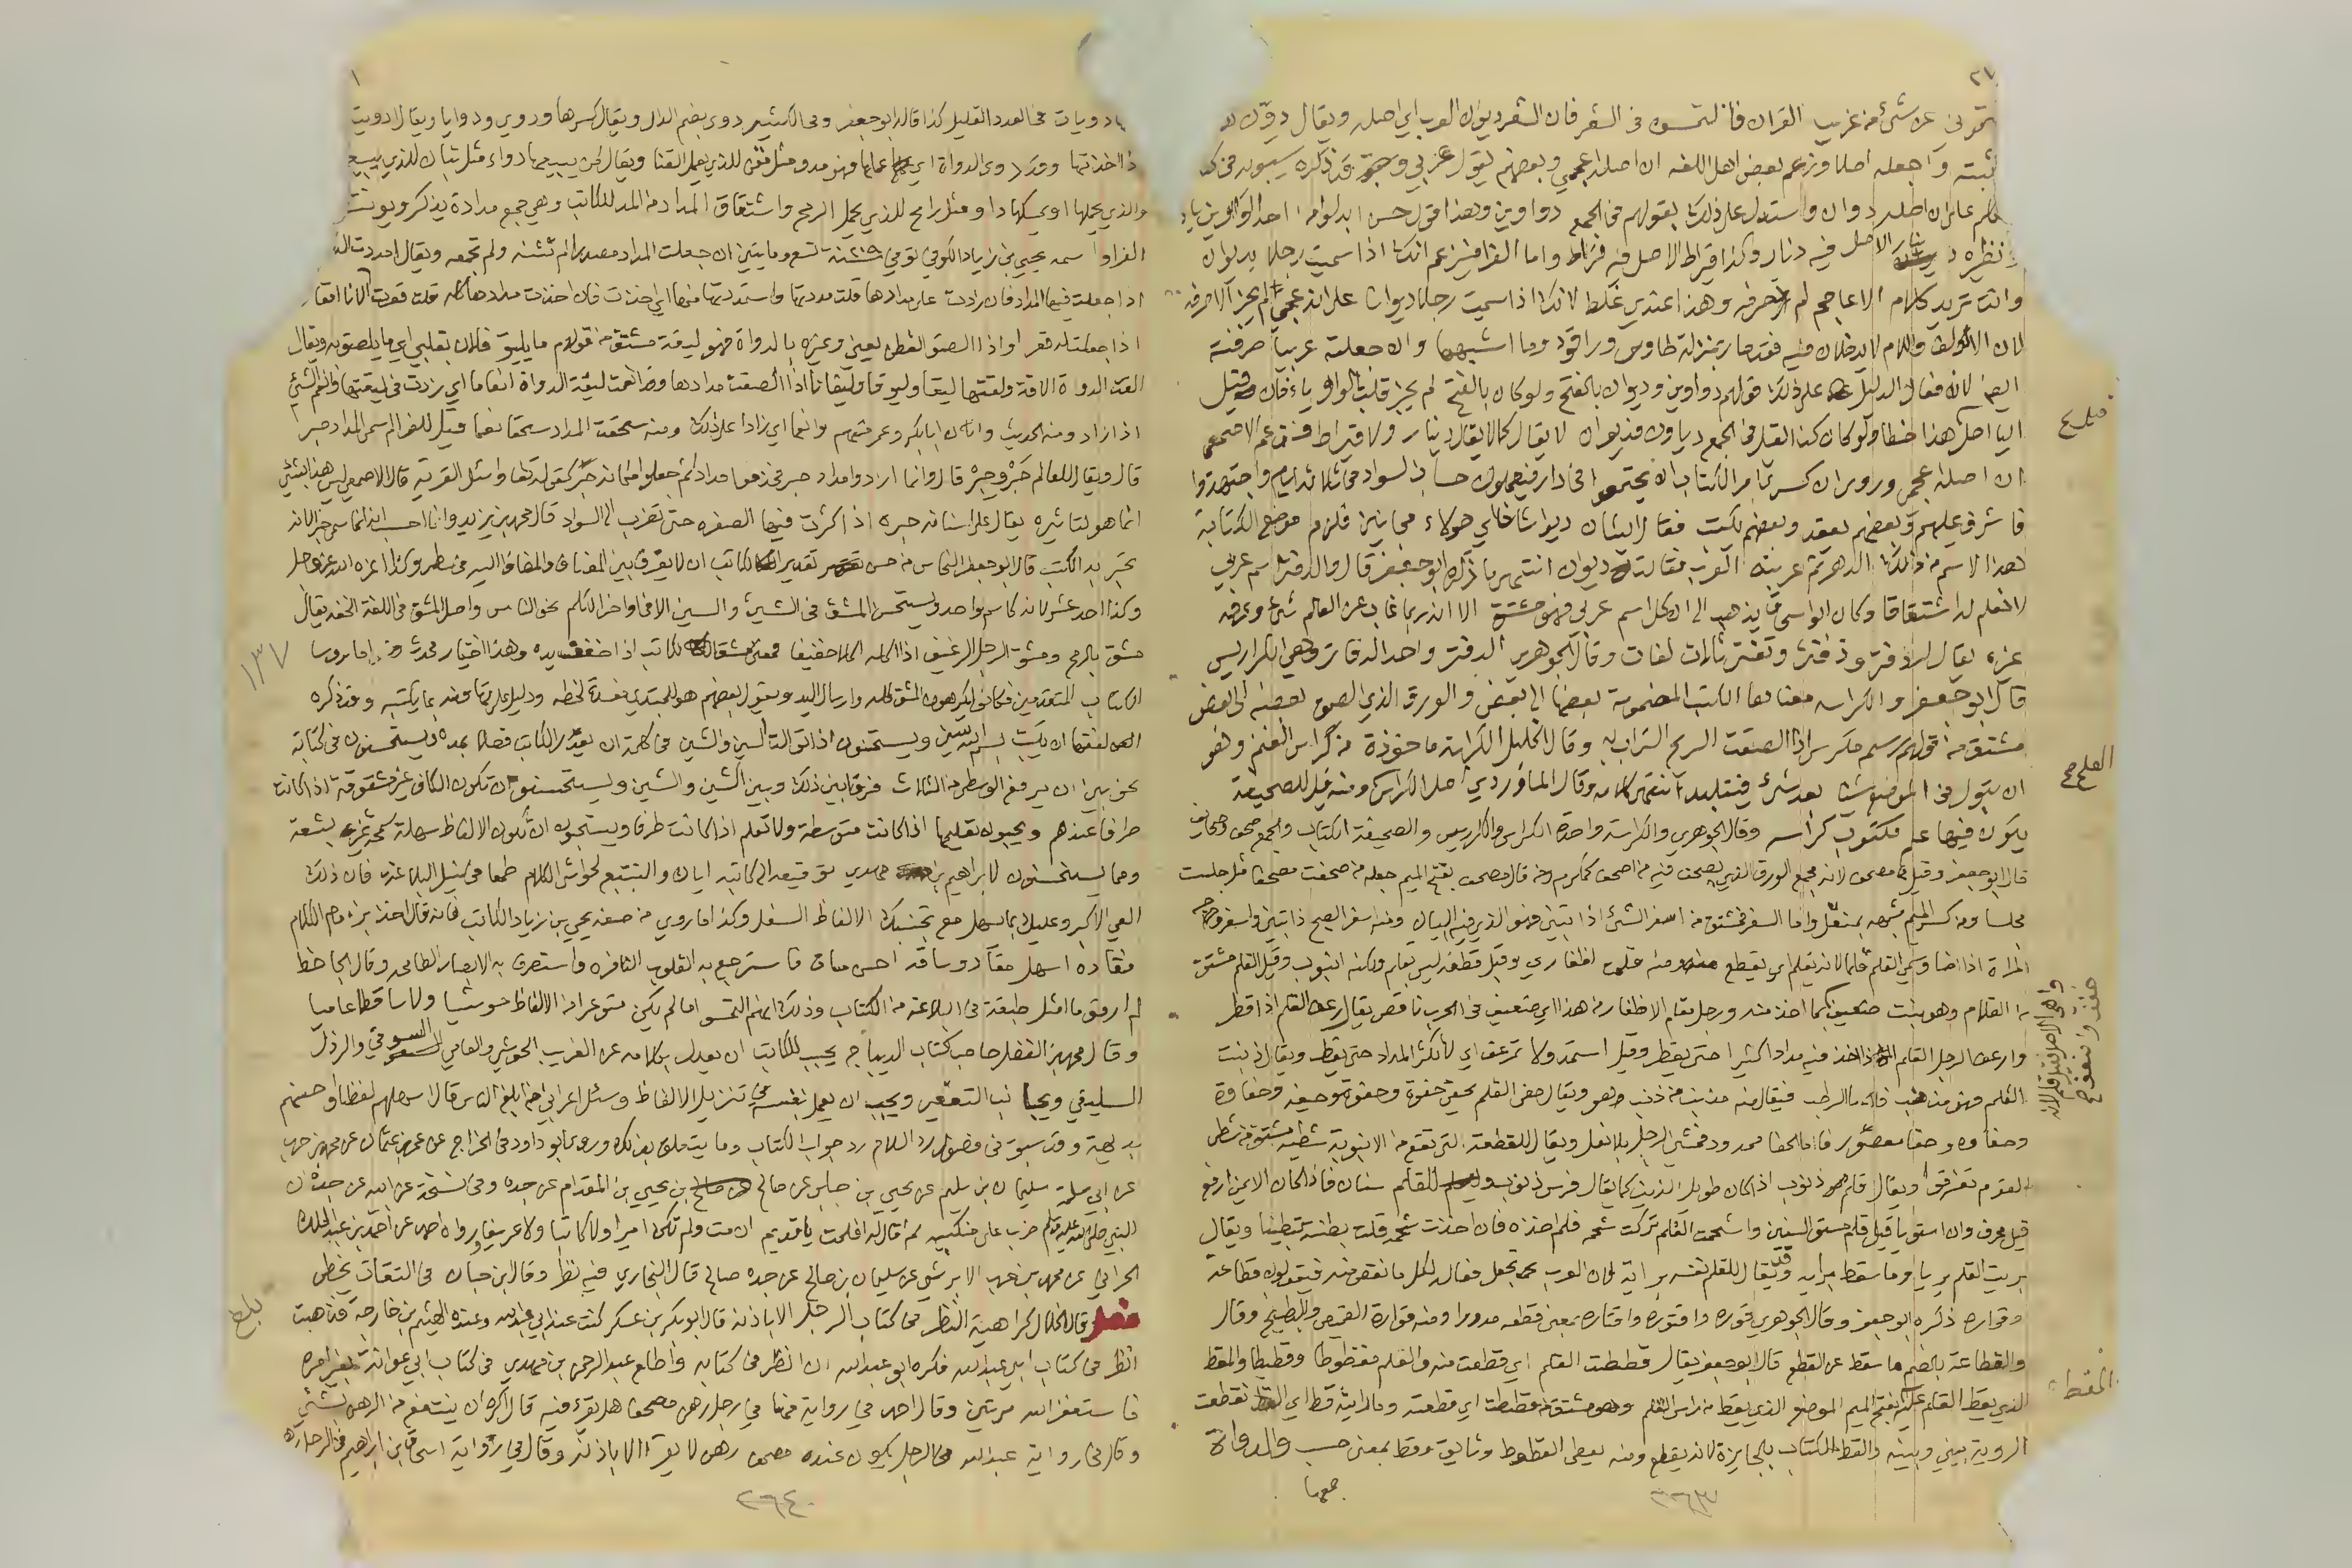 ٢٦
عن شئ من غريب القران فالتمسوه فى الشعر فان الشعر ديوان العرب اي اصله ويقال دون
اثبته واجعله اصلا وزعم بعض اهل اللغه ان اصله عجمي وبعضهم يقول عربي وقد ذكره سيبويه فى
على ان اصله دوان واستدل على ذلك بقولهم فى الجمع دواوين وهذا قول حسن ابدلوا من احد الواوين يا
ونظيره دينار الاصل فيه دنار وكذا قيراط الاصل فيه قراط واما الفرا فيزعم انك اذا سميت رجلا بديوان
وانت تريد كلام الاعاجم لم تصرفه وهذا عندي غلط لانك اذا سميت رجلا ديوانا على انه عجمي لم يجز الا صرفه
لان الالف واللام لا يدخلان فيه فقد صار بمنزلة طاوس وراقود وما اشبههما وان جعلته عربيا صرفته
ايضا لانه فعال الدليل على ذلك قولهم دواوين وديوان بالفتح ولو كان بالفتح لم يجز قلب الواو ياء فان قيل
اليا اصل هذا خطا ولو كان كذا لقيل فى الجمع دياوين فديوان لا يقال كما لا يقال دينار ولا قيراط فزعم الاصمعي
ان اصله عجمي وروي ان كسرى امر الكتاب ان يجتمعوا فى دار فيعملون حساب السواد فى ثلاثة ايام واجتهدوا
فاشرف عليهم وبعضهم يعقد وبعضهم يكتب فقال ايشان ديوانه اي هولاء مجانين فلزم موضع الكتابة
هذا الاسم من ذلك الدهر ثم عربته العرب فقالت ديوان انتهى ما ذكره ابو جعفر قال والدفتر اسم عربي
لا نعلم له اشتقاقا وكان ابو اسحق يذهب الى ان كل اسم عربي فهو مشتق الا انه ربما غاب عن العالم شئ وعرفه
غيره يقال له دفتر ودفتر وتفتر ثلاث لغات وقال الجوهري الدفتر واحد الدفاتر وهي الكراريس
قال ابو جعفر والكراسه معناها الكتب المضمومة بعضها الى بعض والورق الذي الصق بعضه الى بعض
مشتق من قولهم رسم مكرس اذا الصقت الريح التراب به وقال الخليل الكراسة ماخوذة من كراس الغنم وهو
ان يبول فى الموضع شيئا بعد شئ فيتلبد انتهى كلامه وقال الماوردي اصل الكراس ومنه قيل للصحيفة
يكون فيها علم مكتوب كراسه وقال الجوهري والكراسة واحدة الكراس والكراريس والصحيفة الكتاب والجمع صحف وصحايف
قال ابو جعفر وقيل مصحف لانه مجمع الورق الذي يصحف فيه من اصحف كمكرم ومن قال مصحف بفتح الميم جعله من صحفت مصحفا مثل جلست
مجلسا ومن كسر الميم شبهه بمنقل واما السفر فمشتق من اسفر الشئ اذا تبين فهو الذي فيه البيان ومنه اسفر الصبح اذا تبين واسفر وجه
المراة اذا اضا وسمي القلم قلما لانه يقلم اي يقطع منه ومنه قلمت اظفاري وقيل قطعه ليس بقلم ولكنه انبوب وقيل القلم مشتق
من القلام وهو نبت ضعيف كما اخذ منه ورجل مقلم الاظفار من هذا اي ضعيف فى الحرب ناقص يقال رعف القلم اذا قطر
وارعف الرجل القلم اذا اخذ فيه مدادا كثيرا حتى يقطر وقيل استمد ولا ترعف اي لا تكثر المداد حتى يقطر ويقال ذنبت
القلم فهو مذنب فاما الرطب فيقال منه مذنب من ذنب وهو ويقال حفي القلم يحفى حفوة وحفوة وحفيه وحفاوة
وحفاوه وحفا مقصور فاما الحفا ممدود فمشي الرجل بلا نعل ويقال للقطعة التي تقع من الانبوبة شظية مشتق من شظى
القوم تفرقوا ويقال قلم ذنوب اذا كان طويل الذنب كما يقال فرس ذنوب وللقلم سنان فاذا كان الايمن ارفع
قيل محرف وان استويا قيل قلم مستوي السنين واشحمت القلم تركت شحمه فلم اخذه فان اخذت شحمه قلت بطنته تبطينا ويقال
بريت القلم بريا وما سقط برايه وقد يقال للقلم نفسه براية لان العرب تجعل فعاله لكل ما نقص منه فيقولون قطاعة
وقواره ذكره ابو جعفر وقال الجوهري قوره واقتوره واقتاره بمعنى قطعه مدورا ومنه قوارة القميص والبطيخ وقال
والقطاعة بالضم ما سقط عن القطع قال ابو جعفر يقال قططت القلم اي قطعت منه والقلم مقطوط وقطيط والمقط
الذي يقط القلم عليه بفتح الميم الموضع الذي يقط من راس القلم وهو مشتق من قططت اي قطعت وما رايته قط اي انقطعت
الروية بيني وبينه والقط الكتاب بالجايزة لانه يقطع ومنه يعطى القطوط وثاني وقط بمعنى حسب والدواة
جمعها
٢٦٣
العلمي
المقط
دويات فى العدد القليل كذا قال ابو جعفر وفى الكثير دوى بضم الدال ويقال بكسرها ودوي ودوايا ويقال ادويت
اذا اخذتها وقد دوى الدواة اي عملها فهو مدو مثل مقن للذي يعمل القنا ويقال لمن يبيعها دواء مثل تبان للذي يبيع
والذي يحملها او يمسكها داو مثل رامح للذي يحمل الرمح واشتقاق المداد من المدد للكاتب وهي جمع مدادة يذكر ويونث
الفرا واسمه يحيى بن زياد الكوفي توفي سنة تسع ومايتين ان جعلت المداد مصدرا لم تثنه ولم تجمعه ويقال امددت الد
اذا جعلت فيها المداد فان زدت على مدادها قلت مددتها واستمددتها منها اي اخذت فان اخذت مدادها كله قلت قعرت الانا اقعار
اذا جعلت له قعر واذا الصق القطن يعني وغيره بالدواة فهو ليقه مشتق من قولهم ما يليق فلان بقلبي اي ما يلصق به ويقال
القت الدواة الاقة ولقتها ليقا وليوقا وليقانا اذا الصقت مدادها وقد انعمت ليقة الدواة انعاما اي زدت فى ليقتها وانعم الشئ
اذا زاد ومنه الحديث وان ابا بكر وعمر منهم وانعما اي زادا على ذلك ومنه سحقت المداد سحقا نعما قيل للفرا لم سمي المداد حبرا
قال ويقال للعالم حبر وحبر قال وانما ارادوا مداد حبر فحذفوا مدادا ثم جعلوا مكانه حبر كقوله تعالى واسئل القرية قال الاصمعي ليس هذا بشئ
انما هو لتاثيره يقال على اسنانه حبره اذا كثرت فيها الصفره حتى تضرب الى السواد قال محمد بن يزيد وانا احسب انه انما سمي حبرا لانه
يحبر به الكتب قال ابو جعفر النحاس من حسن تقدير الكاتب ان لا يفرق بين المضاف والمضاف اليه فى سطر وكذا اعزه الله عز وجل
وكذا احد عشر لانه كاسم واحد ويستحسن المشق فى الشين والسين الا فى اواخر الكلم نحو الناس واصل المشق فى اللغة الخفه يقال
مشق بالرمح ومشق الرجل الرغيف اذا اكله اكلا خفيفا فمعنى مشق الكاتب اذا خفف يده وهذا اختيار محدث فاما روسا
الكتاب المتقدمين فكانوا يكرهون المشق كله وارسال اليد ويقول بعضهم هو للمبتدي مفسدة لخطه ودليل على تهاونه بما يكتبه وقد ذكره
١٣٧
نحو بين ان يرفع الوسطى من الثلاث فرقا بين ذلك وبين الشين والسين ويستحسنون ان تكون الكاف غير مشقوقة اذا كانت
طرفا عندهم ويحبون تعليمها اذا كانت متوسطة ولا تعلم اذا كانت طرفا ويستحبون ان تكون الالفاظ سهلة سمحة غير بشعة
ومما يستحسنون لابراهيم بن مهدي توقيعه الى كاتبه اياك والتتبع لحوشي الكلام طمعا فى نيل البلاغة فان ذلك
العي الاكبر وعليك بما سهل مع تجنبك الالفاظ السفل وكذا ما روي من صفة يحيى بن زياد الكاتب فانه قال اخذ بزمام الكلام
فقاده اسهل مقاد وساقه احسن مساق فاسترجع به القلوب النافره واستصرف به الابصار الطامحه وقال الجاحظ
لم ار قوما امثل طبقة فى البلاغة من الكتاب وذلك انهم التمسوا ما لم يكن متوعرا من الالفاظ حوشيا ولا ساقطا عاميا
وقال محمد بن الفضل صاحب كتاب الديباج يجب للكاتب ان يعدل بكلامه عن الغريب الحوشي والعامي السوقي والرذل
السليقي ويجانب التقعير ويجب ان يعمل نفسه في تنزيل الالفاظ وسئل اعرابي من ابلغ الناس قال اسهلهم لفظا واحسنهم
بديهة وقد سبق فى فضول رد السلام رد جواب الكتاب وما يتعلق بذلك وروى ابو داود فى الخراج عن عمرو بن عثمان عن محمد بن حرب
عن ابي سلمة سليمان بن سليم عن يحيى بن جابر عن صالح بن يحيى بن المقدام عن جده وفى نسخة عن ابيه عن جده ان
النبي صلى الله عليه وسلم ضرب على منكبيه ثم قال له افلحت يا قديم ان مت ولم تكن اميرا ولا كاتبا ولا عريفا ورواه احمد عن احمد بن عبد الملك
الحراني عن محمد بن حرب الابرش عن سليمان بن صالح عن جده صالح قال البخاري فيه نظر وقال ابن حبان فى الثقات يخطي
فصل قال الخلال كراهية النظر فى كتاب الرجل الا باذنه قال ابو بكر بن عسكر كنت عند ابي عبد الله وعنده الهيثم بن خارجة فذهبت
انظر فى كتاب ابي عبد الله فكره ابو عبد الله ان انظر فى كتابه واطلع عبد الرحمن بن مهدي فى كتاب ابي عوانة بغير امره
فاستغفر الله مرتين وقال احمد في رواية مهنا في رجل رهن مصحفا هل يقرء فيه قال اكره ان ينتفع من الرهن بشئ
وقال فى رواية عبد الله فى الرجل يكون عنده مصحف رهن لا يقرا الا باذنه وقال في رواية اسحق بن ابراهيم فى الرجل
٢٦٤